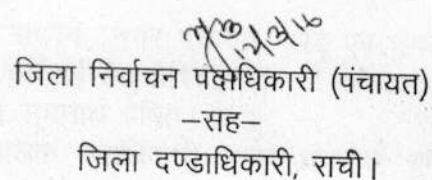 जिला निर्वाचन पदाधिकारी (पंचायत)
—सह—
जिला दण्डाधिकारी, राची।